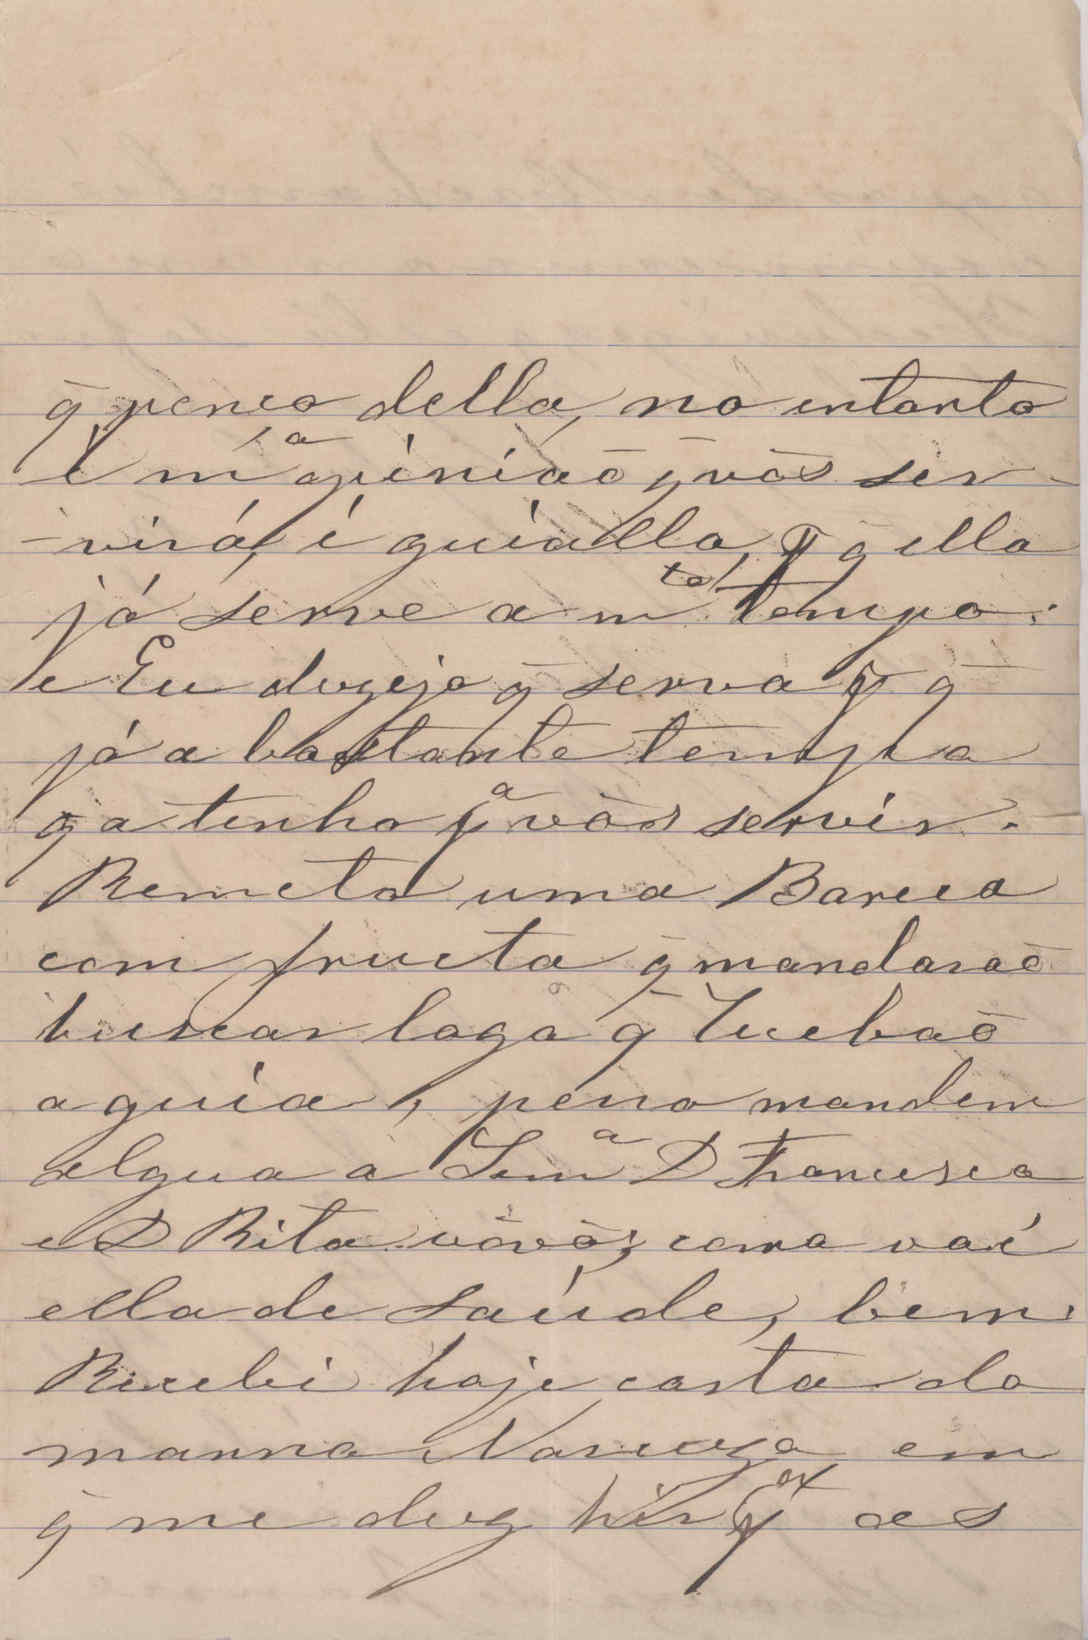 q̃ penço della, no entanto
é mª opiniaõ q̃ vós ser-
virá, é guialla, p q̃ ella
já serve a mto tempo:
e Eu dezejo q̃ serva p q̃
já a bastante tempo
q̃ a tenho pª vós servir.
Remeto uma Barrica
com fructa q̃ mandaraõ
buscar logo q̃ recebaõ
a guia, peço mandem
algua a Senrª D Francisca
e D Rita vóvó; como vai
ella de saúde, bem:
Recebi hoje carta da
manna em
q̃ me diz hir as